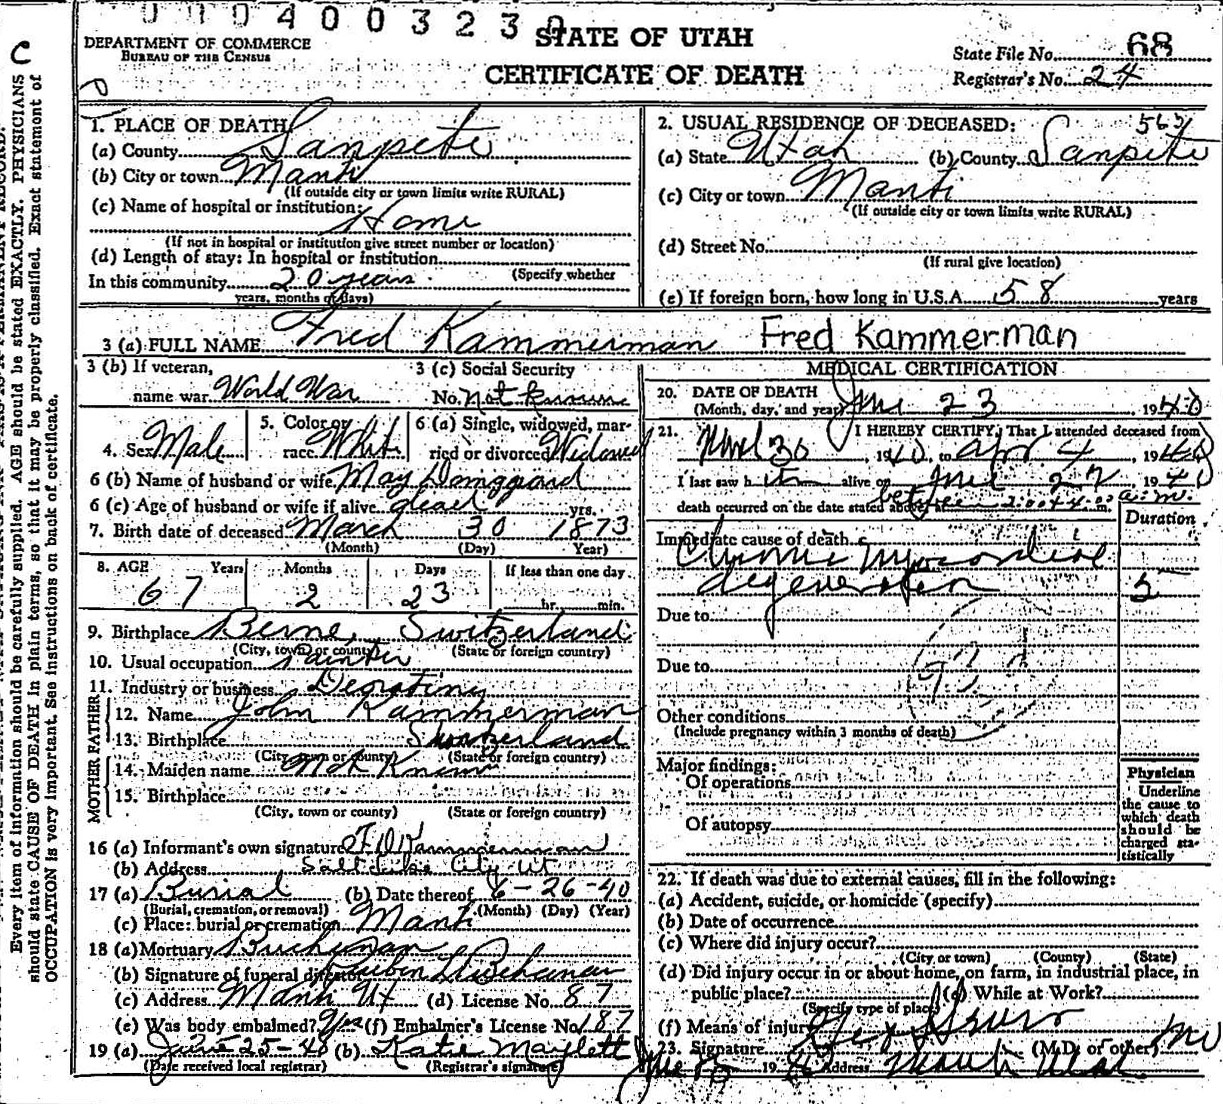 010400323
C
DEPARTMENT OF COMMERCE
BUREAU OF THE CENSUS
STATE OF UTAH
CERTIFICATE OF DEATH
State File No. 68
Registrar's No. 24
Every item of information should be carefully supplied. AGE should be stated EXACTLY. PHYSICIANS
should state CAUSE OF DEATH in plain terms, so that it may be properly classified. Exact statement of
OCCUPATION is very important. See instructions on back of certificate.
1. PLACE OF DEATH
(a) County Sanpete
(b) City or town Manti
(If outside city or town limits write RURAL)
(c) Name of hospital or institution:
Home
(If not in hospital or institution give street number or location)
(d) Length of stay: In hospital or institution
(Specify whether
In this community 20 years
years, months or days)
2. USUAL RESIDENCE OF DECEASED:
(a) State Utah (b) County Sanpete
(c) City or town Manti
(If outside city or town limits write RURAL)
(d) Street No.
(If rural give location)
(e) If foreign born, how long in U.S.A. 58 years
3 (a) FULL NAME Fred Kammerman Fred Kammerman
3 (b) If veteran,
name war World War
3 (c) Social Security
No. Not Known
4. Sex Male
5. Color or
race White
6 (a) Single, widowed, mar-
ried or divorced Widowed
6 (b) Name of husband or wife May Damgaard
6 (c) Age of husband or wife if alive dead yrs.
7. Birth date of deceased March 30 1873
(Month) (Day) Year)
8. AGE Years Months Days If less than one day
67 2 23 hr. min.
9. Birthplace Berne, Switzerland
(City, town or county) (State or foreign country)
10. Usual occupation Painter
11. Industry or business Decrating
FATHER
12. Name John Kammerman
13. Birthplace Switzerland
(City, town or county) (State or foreign country)
MOTHER
14. Maiden name Not Known
15. Birthplace
(City, town or county) (State or foreign country)
16 (a) Informant's own signature F. D. Kammerman
(b) Address Salt Lake City Ut
17 (a) Burial (b) Date thereof 6-26-40
(Burial, cremation, or removal) (Month) (Day) (Year)
(c) Place: burial or cremation Manti
18 (a) Mortuary Buchanan
(b) Signature of funeral director Buchanan
(c) Address Manti Ut (d) License No. 87
(e) Was body embalmed? Yes (f) Embalmer's License No. 187
19 (a) June 25-40 (b) Katie Maylett
(Date received local registrar) (Registrar's signature)
MEDICAL CERTIFICATION
20. DATE OF DEATH
(Month, day, and year) June 23 1940
21. I HEREBY CERTIFY, That I attended deceased from
30, 1940, to Apr 4, 1940
I last saw him alive on June 22 1940
death occurred on the date stated above between 2:00 4:00 a.m. m.
Duration
Immediate cause of death
Chronic myocardial
degeneration 5
Due to
Due to
Other conditions
(Include pregnancy within 3 months of death)
Major findings:
Of operations
Of autopsy
Physician
Underline
the cause to
which death
should be
charged sta-
tistically
22. If death was due to external causes, fill in the following:
(a) Accident, suicide, or homicide (specify)
(b) Date of occurrence
(c) Where did injury occur?
(City or town) (County) (State)
(d) Did injury occur in or about home, on farm, in industrial place, in
public place? (e) While at Work?
(Specify type of place)
(f) Means of injury
23. Signature (M.D. or other) MD
19 Address Manti Utah